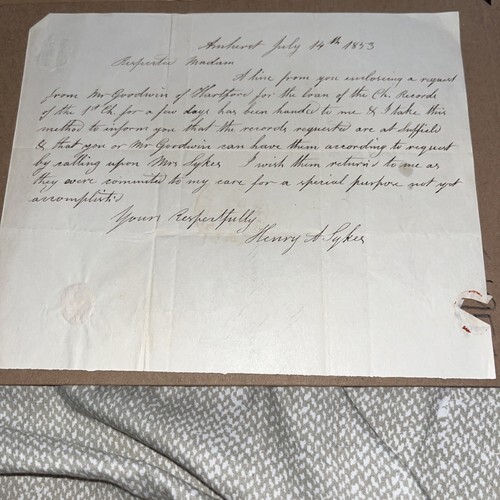 Amherst July 14th 1853
Respected Madam
A line from you enclosing a request
from Mr Goodwin of Hartford for the loan of the Ch. Records
of the 1st Ch. for a few days has been handed to me & I take this
method to inform you that the records requested are at Suffield
& that you or Mr Goodwin can have them according to request
by calling upon Mrs Sykes I wish them return'd to me as
they were commited to my care for a special purpose not yet
accomplish'd
Yours Respectfully
Henry A. Sykes